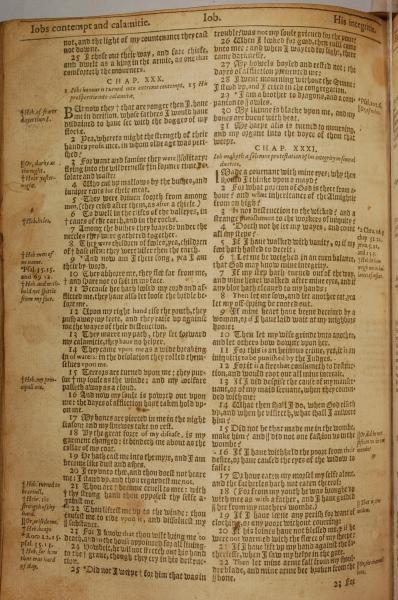 Iobs contempt and calamitie.
Iob.
His integritie.
not, and the light of my countenance they cast
not downe.
25 I chose out their way, and sate chiefe,
and dwelt as a king in the armie, as one that
comforteth the mourners.
CHAP. XXX.
1 Iobs honour is turned into extreme contempt, 15 His
prosperitie into calamitie.
But now they that are yonger then I, haue
me in derision, whose fathers I would haue
disdained to haue set with the dogges of my
flocke.
2 Yea, whereto might the strength of their
hands profit me, in whom olde age was peri-
shed?
3 For want and famine they were solitary:
flying into the wildernesse in former time de-
solate and waste:
4 Who cut vp mallowes by the bushes, and
Iuniper roots for their meat.
5 They were driuen foorth from among
men, (they cried after them, as after a thiefe.)
6 To dwell in the clifts of the valleyes, in
caues of the earth, and in the rocks.
7 Among the bushes they brayed: vnder the
nettles they were gathered together.
8 They were children of fooles, yea, children
of base men: they were viler then the earth.
9 And now am I their song, yea I am
their by-word.
10 They abhorre me, they flee far from me,
and spare not to spit in my face.
11 Because hee hath loosed my cord and af-
flicted me, they haue also let loose the bridle be-
fore me.
12 Vpon my right hand rise the youth, they
push away my feete, and they raise vp against
me the wayes of their destruction.
13 They marre my path, they set forward
my calamitie, they haue no helper.
14 They came vpon me as a wide breaking
in of waters: in the desolation they rolled them-
selues vpon me.
15 Terrors are turned vpon me: they pur-
sue my soule as the winde: and my welfare
passeth away as a cloude.
16 And now my soule is powred out vpon
me: the dayes of affliction haue taken hold vp-
on me.
17 My bones are pierced in me in the night
season: and my sinewes take no rest.
18 By the great force of my disease, is my
garment changed: it bindeth me about as the
collar of my coat.
19 He hath cast me into the myre, and I am
become like dust and ashes.
20 I cry vnto thee, and thou doest not heare
me: I stand vp, and thou regardest me not.
21 Thou art become cruel to mee: with
thy strong hand thou opposest thy selfe a-
gainst me.
22 Thou liftest me vp to the winde: thou
causest me to ride vpon it, and dissoluest my
substance.
23 For I know that thou wilt bring me to
death, and to the house appointed for all liuing.
24 Howbeit, he will not stretch out his hand
to the graue, though they cry in his destruc-
25 Did not I weepe for him that was in
trouble? was not my soule grieued for the poore?
26 When I looked for good, then euill came
vnto me: and when I wayted for light, there
came darkenesse.
27 My bowels boyled and rested not: the
dayes of affliction preuented me.
28 I went mourning without the Sunne:
I stood vp, and I cried in the congregation.
29 I am a brother to dragons, and a com-
panion to owles.
30 My skinne is blacke vpon me, and my
bones are burnt with heat.
31 My harpe also is turned to mourning,
and my organe into the voyce of them that
weepe.
CHAP. XXXI.
Iob maketh a solemne protestation of his integrity in seuerall
dueties.
I Made a couenant with mine eyes; why then
should I thinke vpon a mayd?
2 For what portion of God is there from a-
boue? and what inheritance of the Almightie
from on high?
3 Is not destruction to the wicked? and a
strange punishment to the workers of iniquity?
4 Doeth not he see my wayes, and count
all my steps?
5 If I haue walked with vanity, or if my
foot hath hasted to deceit;
6 Let me be weighed in an euen balance,
that God may know mine integritie.
7 If my step hath turned out of the way,
and mine heart walked after mine eyes, and if
any blot hath cleaued to my hands:
8 Then let me sow, and let another eat, yea
let my off-spring be rooted out.
9 If mine heart haue bene deceiued by a
woman, or if I haue laid wait at my neighbour
doore:
10 Then let my wife grinde vnto another,
and let others bow downe vpon her.
11 For this is an heinous crime, yea, it is an
iniquity to be punished by the Iudges.
12 For it is a fire that consumeth to destruc-
tion, and would root out all mine increase.
13 If I did despise the cause of my manser-
uant, or of my maid seruant, when they conten-
ded with me:
14 What then shall I do, when God riseth
vp, and when he visiteth, what shall I answere
him?
15 Did not he that made me in the wombe,
make him? and did not one fashion vs in the
wombe?
16 If I haue withheld the poore from their
desire, or haue caused the eyes of the widow to
faile:
17 Or haue eaten my morsell my selfe alone,
and the fatherlesse hath not eaten thereof:
18 (For from my youth he was brought vp
with me as with a father, and I haue guided
her from my mothers wombe.)
19 If I haue seene any perish for want of
clothing, or any poore without couering:
20 If his loines haue not blessed me, and if he
were not warmed with the fleece of my sheepe:
21 If I haue lift vp my hand against the fa-
therlesse, when I saw my helpe in the gate:
22 Then let mine arme fall from my shoul-
der blade, and mine arme bee broken from the
bone.
23 For